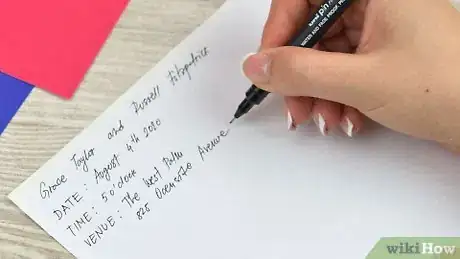 Grace Taylor and Russell Fitzpatrick
DATE: August 4th 2020
TIME: 5 o'clock
VENUE: The West Palm
825 Oceansite Avenue
uni pin
WATER AND FADE PROOF
wikiHow